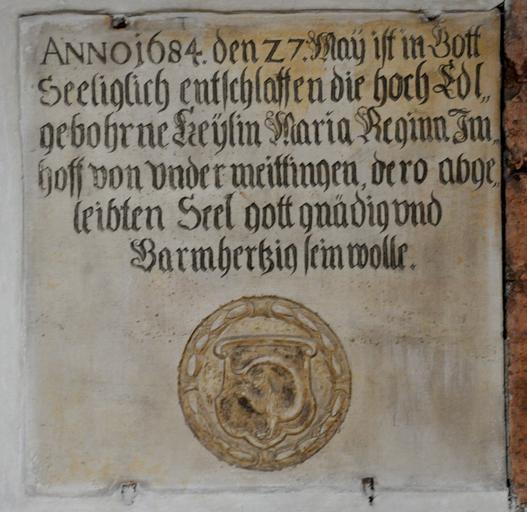 ANNO 1684. den 27. Maÿ ist in Gott
Seeliglich entschlaffen die hoch Edl„
gebohrne Freÿlin Maria Regina Im„
hoff von vndermeittingen, dero abge„
leibten Seel gott gnädig vnd
Barmhertzig sein wolle.